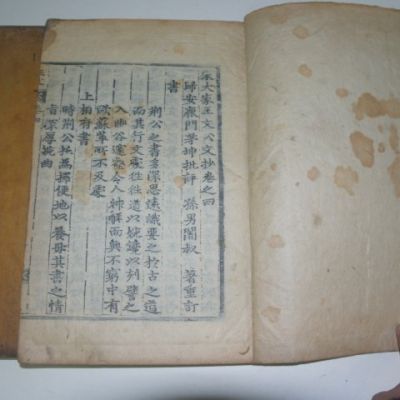 宋大家王文公文抄卷之四
歸安鹿門茅坤批評 孫男闇叔 著重訂
書
荊公之書多深思遠識要之於古之道
而其行文處往往遒以婉鑱以刻譬之
入幽谷邃壑令人神解而興不窮中有
歐蘇輩所不及處
上相府書
時荊公以爲擇便地以養母其書之情
旨深厚婉曲